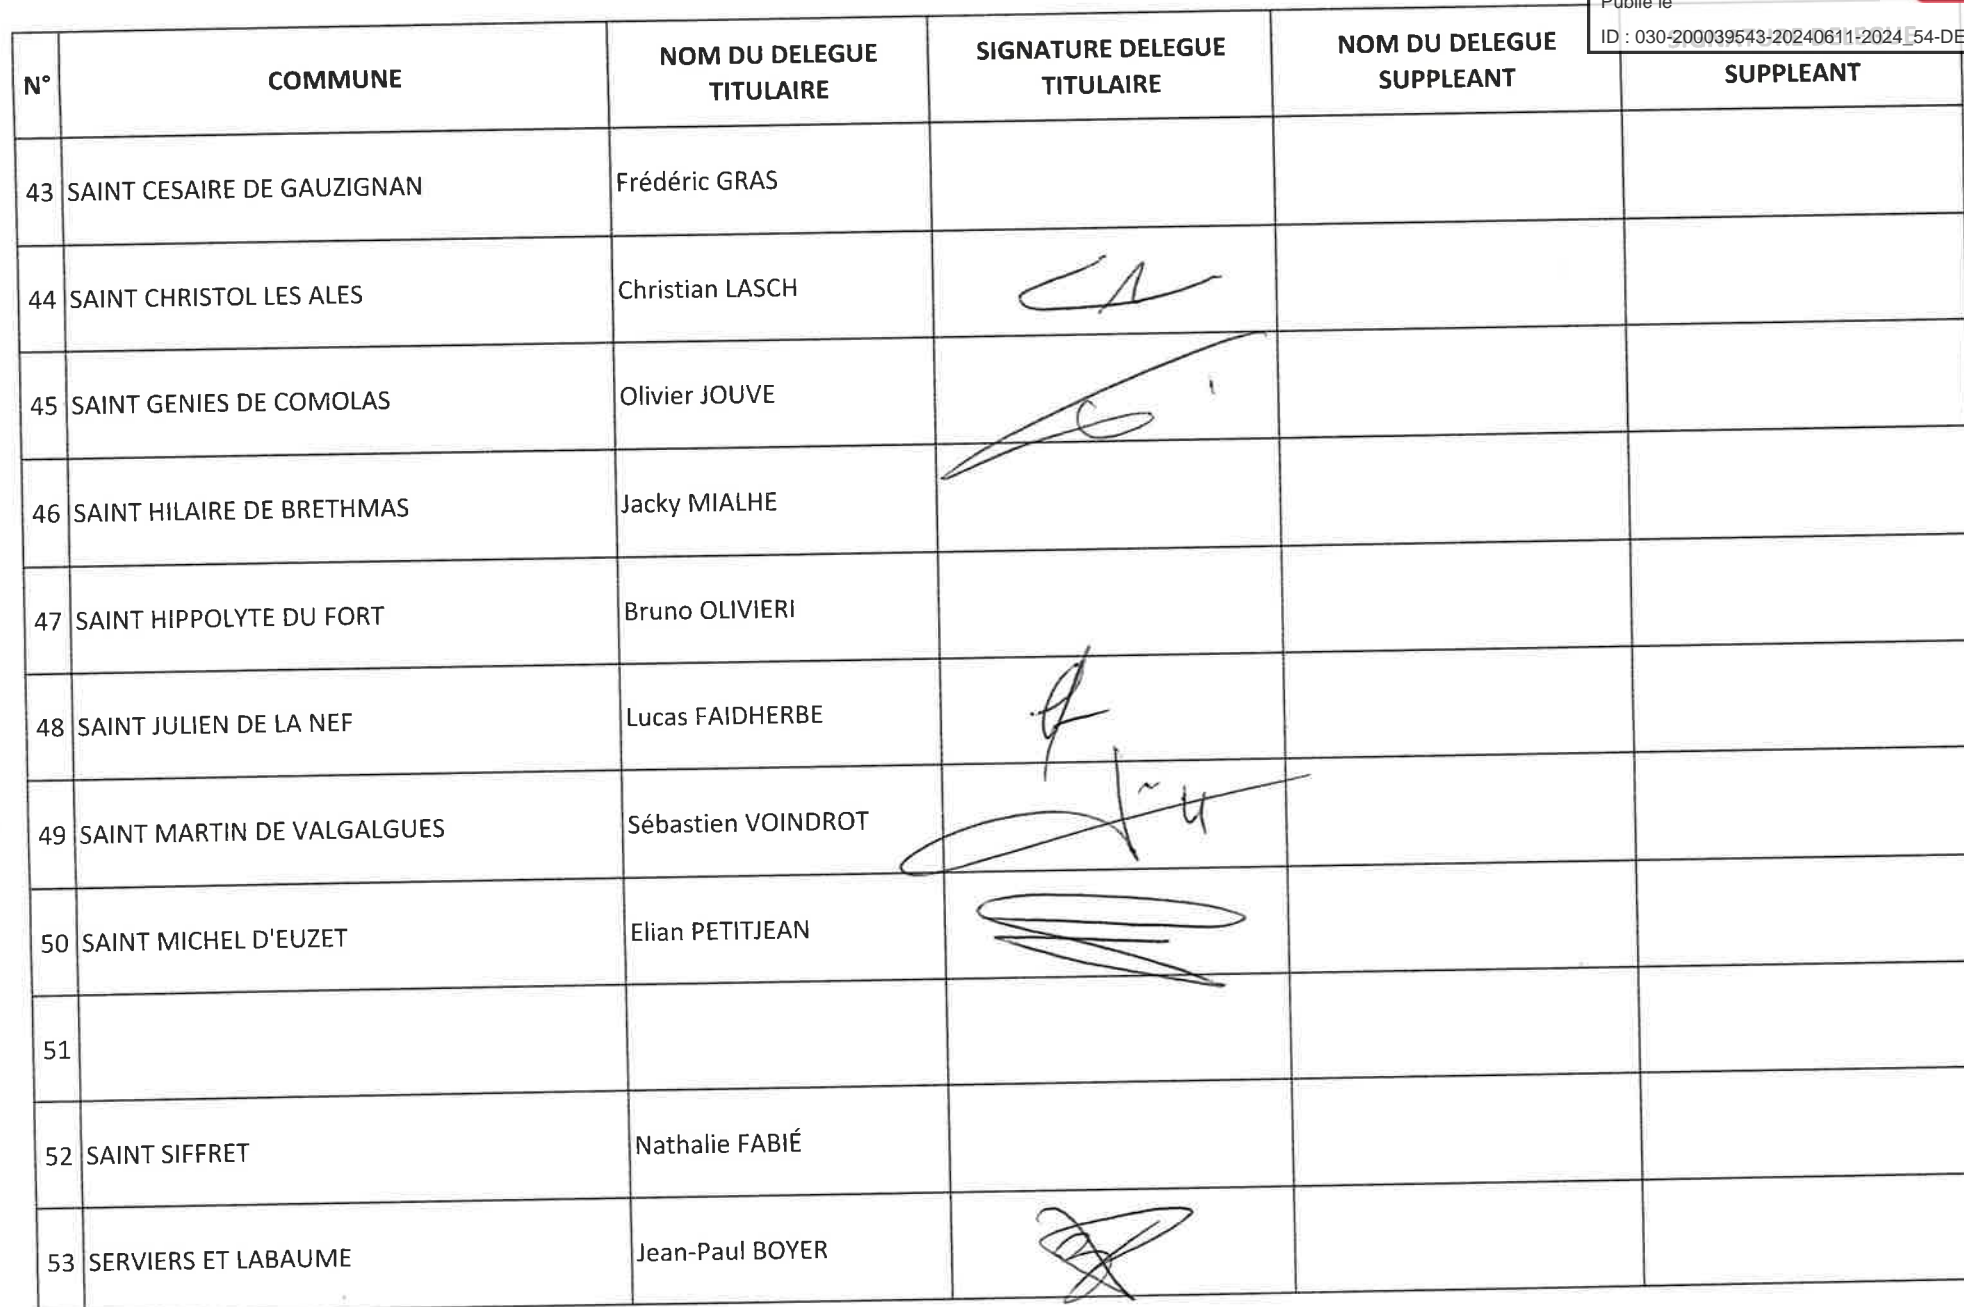 Publié le
ID : 030-200039543-20240611-2024_54-DE
N°
COMMUNE
NOM DU DELEGUE
TITULAIRE
SIGNATURE DELEGUE
TITULAIRE
NOM DU DELEGUE
SUPPLEANT
SIGNATURE DELEGUE
SUPPLEANT
43 SAINT CESAIRE DE GAUZIGNAN Frédéric GRAS
44 SAINT CHRISTOL LES ALES Christian LASCH
45 SAINT GENIES DE COMOLAS Olivier JOUVE
46 SAINT HILAIRE DE BRETHMAS Jacky MIALHE
47 SAINT HIPPOLYTE DU FORT Bruno OLIVIERI
48 SAINT JULIEN DE LA NEF Lucas FAIDHERBE
49 SAINT MARTIN DE VALGALGUES Sébastien VOINDROT
50 SAINT MICHEL D'EUZET Elian PETITJEAN
51
52 SAINT SIFFRET Nathalie FABIÉ
53 SERVIERS ET LABAUME Jean-Paul BOYER